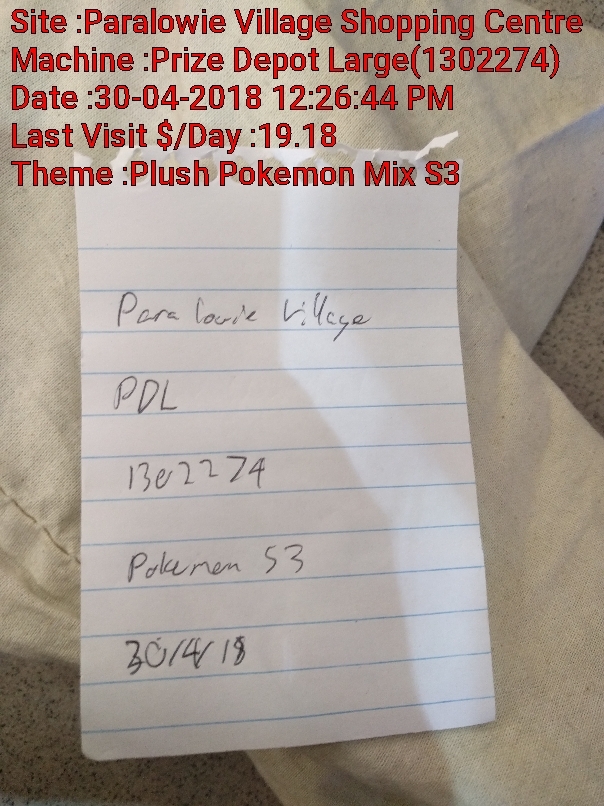 Site :Paralowie Village Shopping Centre
Machine :Prize Depot Large(1302274)
Date :30-04-2018 12:26:44 PM
Last Visit $/Day :19.18
Theme :Plush Pokemon Mix S3
Paralowie Village
PDL
1302274
Pokemon S3
30/4/18